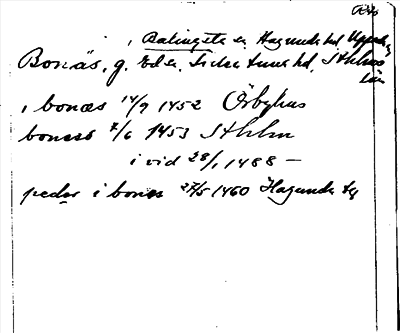 i Balingsta sn Hagunda hd Uppsala
Bonäs, g. sn. hd, Sthlms
län
i bonæs 14/9 1452 Örbyhus
bones 7/6 1453 Sthlm
i vid 28/1 1488 —
pedar i bones 27/5 1460 Hagunda tg